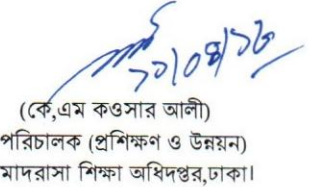 (কে,এম কওসার আলী)
পরিচালক (প্রশিক্ষণ ও উন্নয়ন)
মাদরাসা শিক্ষা অধিদপ্তর,ঢাকা।